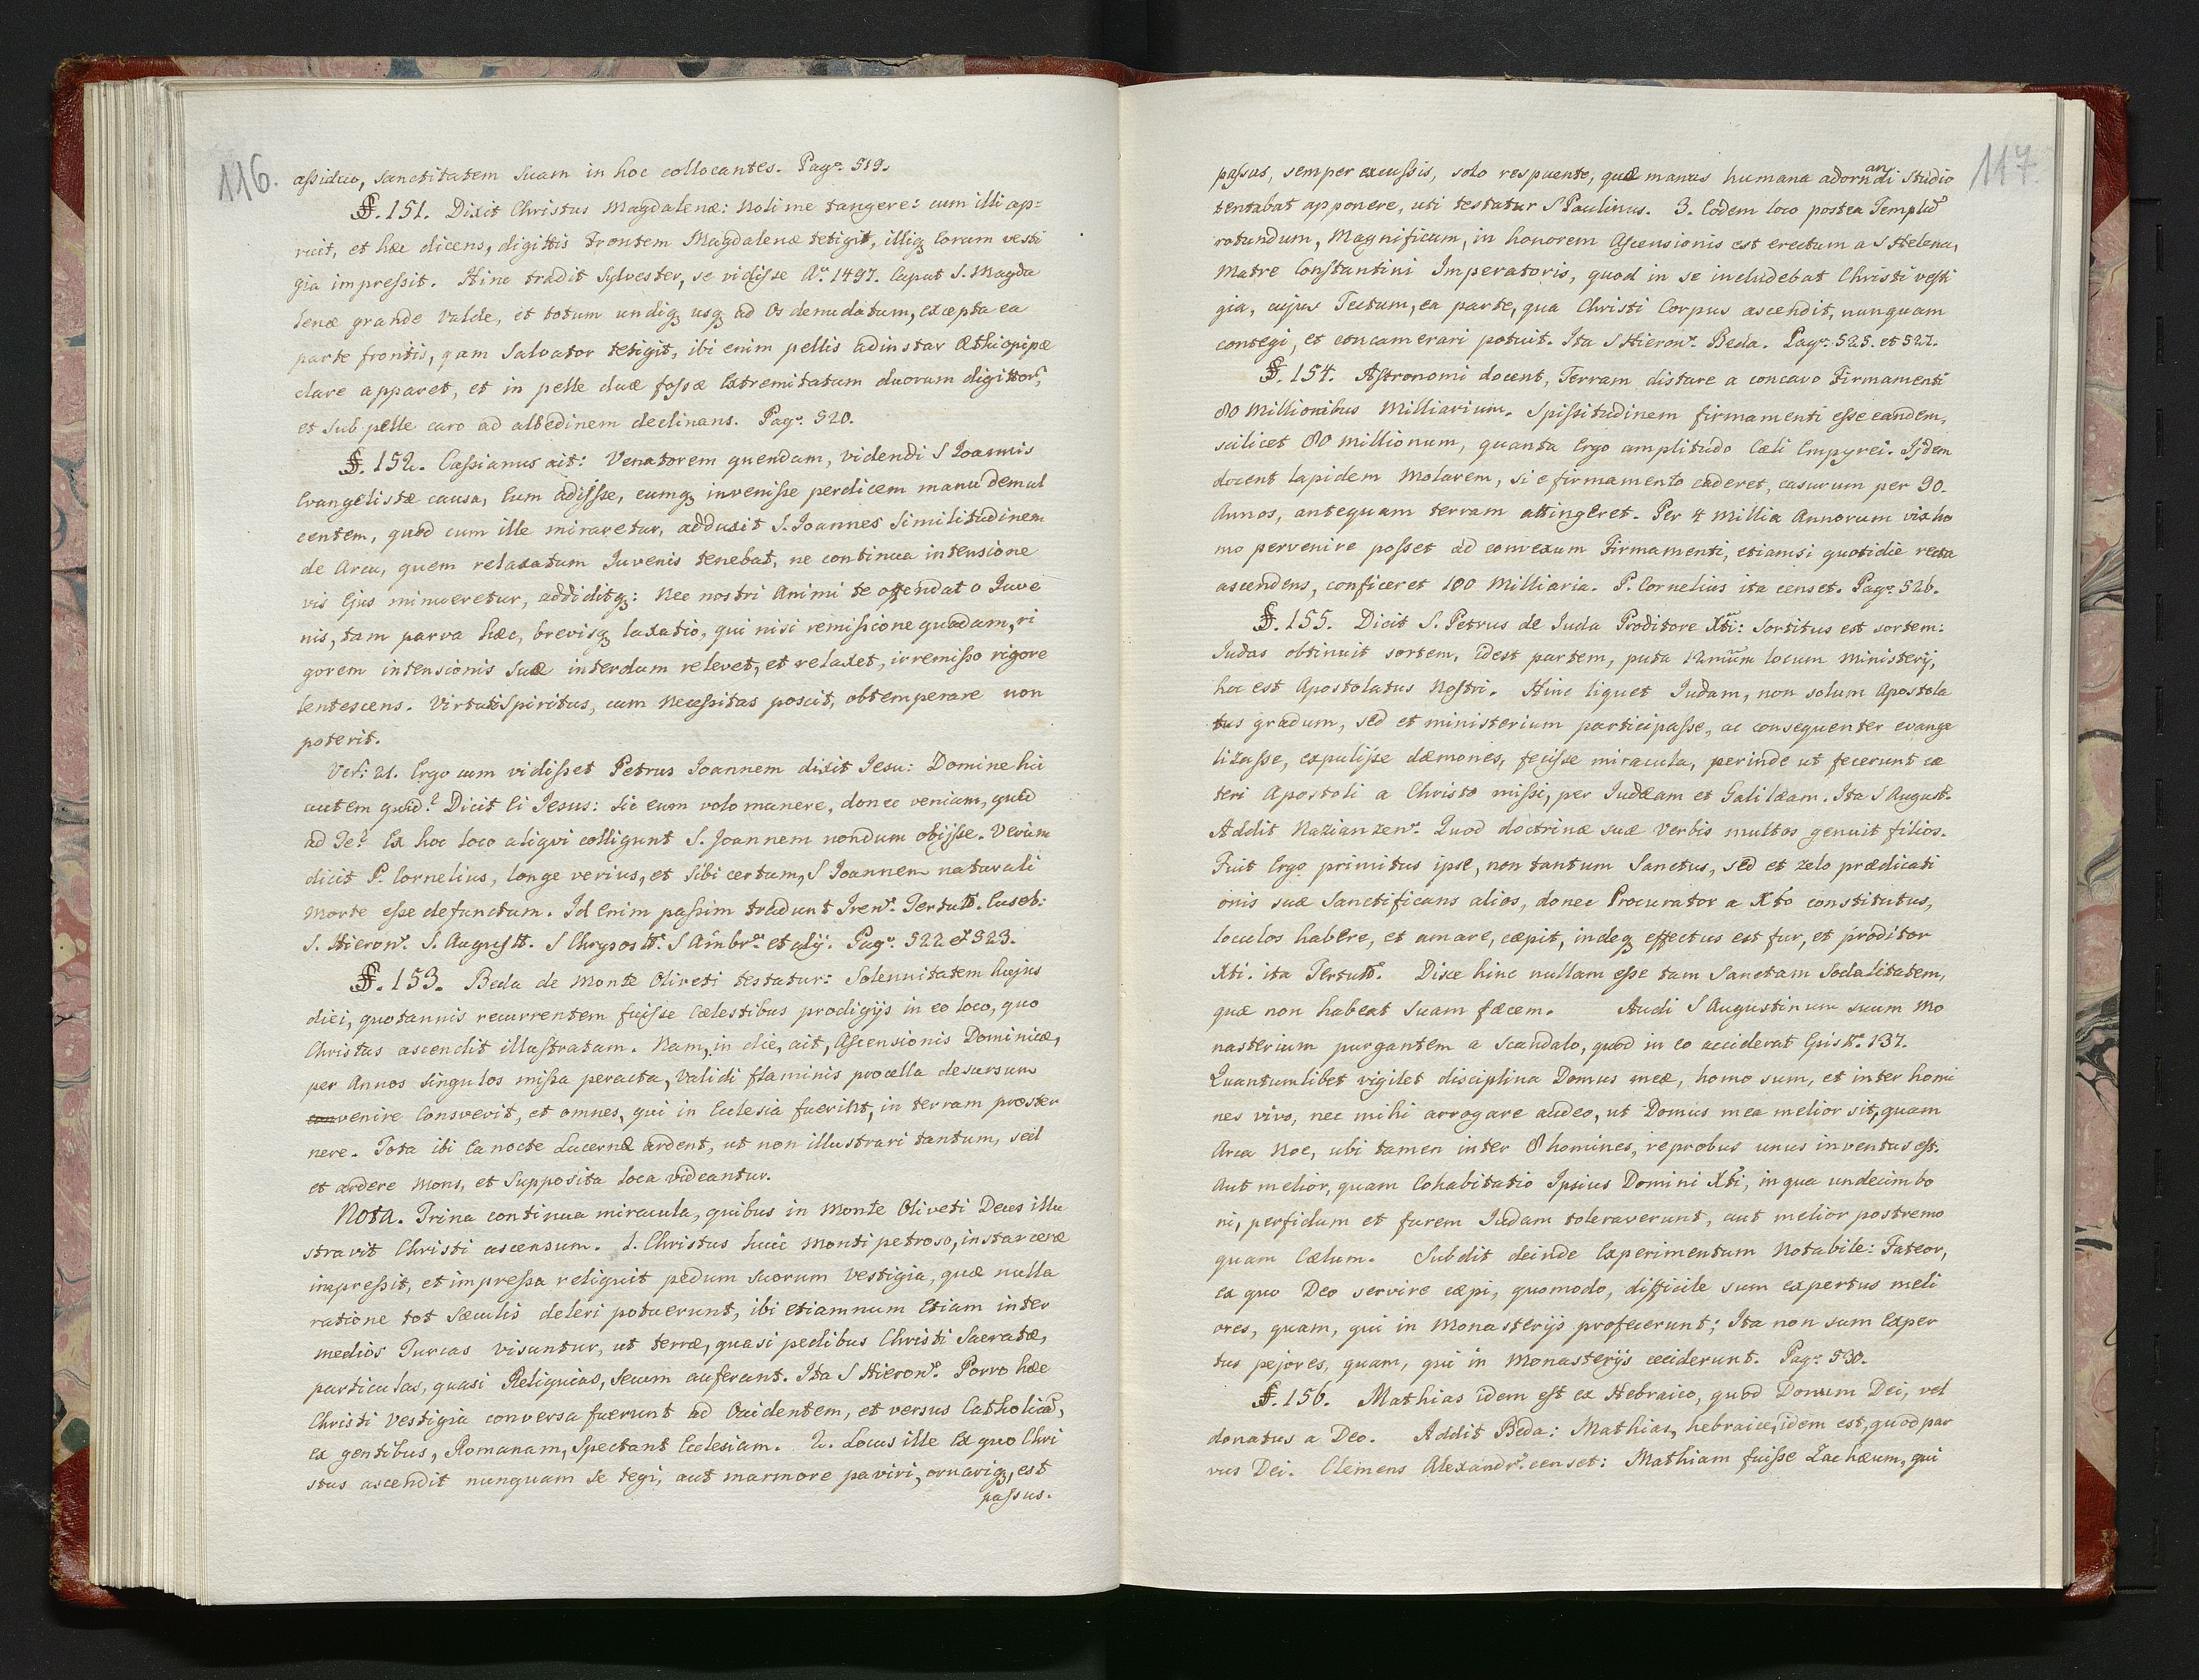 116.
assiduo, sanctitatem suam in hoc collocantes. Pag: 519.
§. 151. Dixit Christus Magdalenæ: Noli me tangere: cum illi ap=
ruit, et hæc dicens, digittis Frontem Magdalenæ tetigit, illiq; eorum vesti
gia impressit. Hinc tradit Sylvester, se vidisse Aº. 1497. Caput S. Magda
lenæ grande valde, et totum undiq; usq; ad Os denudatum, excepta ea
parte frontis, qam Salvator tetigit, ibi enim pellis adinstar Æthiopipæ
clare apparet, et in pelle duæ fossæ Extremitatum duorum digittor,
et sub pelle caro ad albedinem declinans. Pag: 520.
§. 152. Cassianus ait: Venatorem quendam, videndi S Ioannis
Evangelistæ causa, Eum adijsse, eumq; invenisse perdicem manu demul
centem, quod cum ille miraretur, adduxit S. Ioannes Similitudinem
de Arcu, quem relaxatum Iuvenis tenebat, ne continua intensione
vis Ejus minueretur, addiditq;: Nec nostri Animi te offendat o Iuve
nis, tam parva hæc, brevisq; laxatio, qui nisi remissione quadam, ri
gorem intensionis suæ interdum relevet, et relaxet, irremisso rigore
lentescens. Virtuti Spiritus, cum Necessitas poscit, obtemperare non
poterit.
Vers: 21. Ergo cum vidisset Petrus Ioannem dixit Iesu: Domine hic
autem quid? Dicit Ei Iesus: Sic eum volo manere, donec veniam, quid
ad Te? Ex hoc loco aliqvi colligunt S. Joannem nondum obijsse. Verum
dicit P. Cornelius, longe verius, et Sibi certum, S Ioannem naturali
Morte esse defunctum. Id Enim passim tradunt Iren: Tertull. Euseb:
S. Hieron: S. August: S Chrysost: S Ambr: et alij. Pag: 522 et 523.
§. 153. Beda de Monte Oliveti testatur: Solennitatem hujus
diei, quotannis recurrentem fuisse Cælestibus prodigijs in eo loco, quo
Christus ascendit illustratam. Nam, in die, ait, Ascensionis Dominicæ,
per Annos singulos missa peracta, validi flaminis procella desursum
convenire Consvevit, et omnes, qui in Ecclesia fuerint, in terram proster
nere. Tota ibi Ea nocte Lucernæ ardent, ut non illustrari tantum, sed
et ardere Mons, et Supposita loca videantur.
Nota. Trina continua miracula, quibus in Monte Oliveti Deus illu
stravit Christi ascensum. 1. Christus huic Monti petroso, instar ceræ
impressit, et impressa reliquit pedum suorum Vestigia, quæ nulla
ratione tot Sæculis deleri potuerunt, ibi etiamnum Etiam inter
medios Turcas visuntur, ut terræ, quasi pedibus Christi Sacratæ,
particulas, quasi Reliquias, Secum auferunt. Ita S Hieron: Porro hæc
Christi Vestigia conversa fuerunt ad Occidentem, et versus Catholicā,
Ex gentibus, Romanam, Spectant Ecclesiam. 2. Locus ille Ex quo Chri
stus ascendit nunquam se tegi, aut marmore paviri, ornariq; est
passus.
117
passus, semper excussis, solo respuente, quæ manus humana adornandi studio
tentabat apponere, uti testatur S Paulinus. 3. Eodem loco postea Templū
rotundum, Magnificum, in honorem Ascensionis est erectum a S Helena,
Matre Constantini Imperatoris, quod in se includebat Christi vesti
gia, cujus Tectum, ea parte, qua Christi Corpus ascendit, nunquam
contegi, et concamerari potuit. Ita S Hieron: Beda. Pag: 525. et 527.
§. 154. Astronomi docent, Terram distare a concavo Firmamenti
80 Millionibus Milliarium. Spissitudinem firmamenti esse eandem,
scilicet 80 Millionum, quanta Ergo amplitudo Cæli Empyrei. Ijdem
docent lapidem Molarem, si e firmamento caderet, casurum per 90.
Annos, antequam terram attingeret. Per 4 Millia Annorum vix ho
mo pervenire posset ad convexum Firmamenti, etiamsi quotidie recta
ascendens, conficeret 100 Milliaria. P. Cornelius ita censet. Pag: 526.
§. 155. Dicit S. Petrus de Iuda Proditore Xti: Sortitus est sortem:
Iudas obtinuit sortem, idest partem, puta 12mum locum Ministerij,
hoc est Apostolatus Nostri. Hinc liquet Iudam, non solum Apostola
tus gradum, sed et ministerium participasse, ac consequenter evange
lizasse, expulisse dæmones, fecisse miracula, perinde ut fecerunt cæ
teri Apostoli a Christo missi, per Iudæam et Galilæam. Ita S August:
Addit Nazianzen: Quod doctrinæ suæ Verbis multos genuit filios.
Fuit Ergo primitus ipse, non tantum Sanctus, sed et zelo prædicati
onis suæ Sanctificans alios, donec Procurator a Xto constitutus,
loculos habere, et amare, cæpit, indeq; effectus est fur, et proditor
Xti. ita Tertull: Disce hinc nullam esse tam Sanctam Sodalitatem,
quæ non habeat Suam fæcem. Audi S Augustinum suum Mo
nasterium purgantem a Scandalo, quod in eo acciderat Epist: 137.
Quantumlibet vigilet disciplina Domus meæ, homo sum, et inter homi
nes vivo, nec mihi arrogare audeo, ut Domus mea melior sit, quam
Arca Noe, ubi tamen inter 8 homines, reprobus unus inventus est.
Aut melior, quam Cohabitatio Ipsius Domini Xti, in qua undecim bo
ni, perfidum et furem Iudam toleraverunt, aut melior postremo
quam Cælum. Subdit deinde Experimentum Notabile: Fateor,
ex quo Deo servire cæpi, quomodo, difficile sum expertus meli
ores, quam, qui in Monasterijs profecerunt; Ita non sum Exper
tus pejores, quam, qui in Monasterijs ceciderunt. Pag: 530.
§. 156. Mathias idem est ex Hebraico, quod Donum Dei, vel
donatus a Deo. Addit Beda: Mathias, hebraice, idem est, quod par
vus Dei. Clemens Alexandr: censet: Mathiam fuisse Zachæum, qui